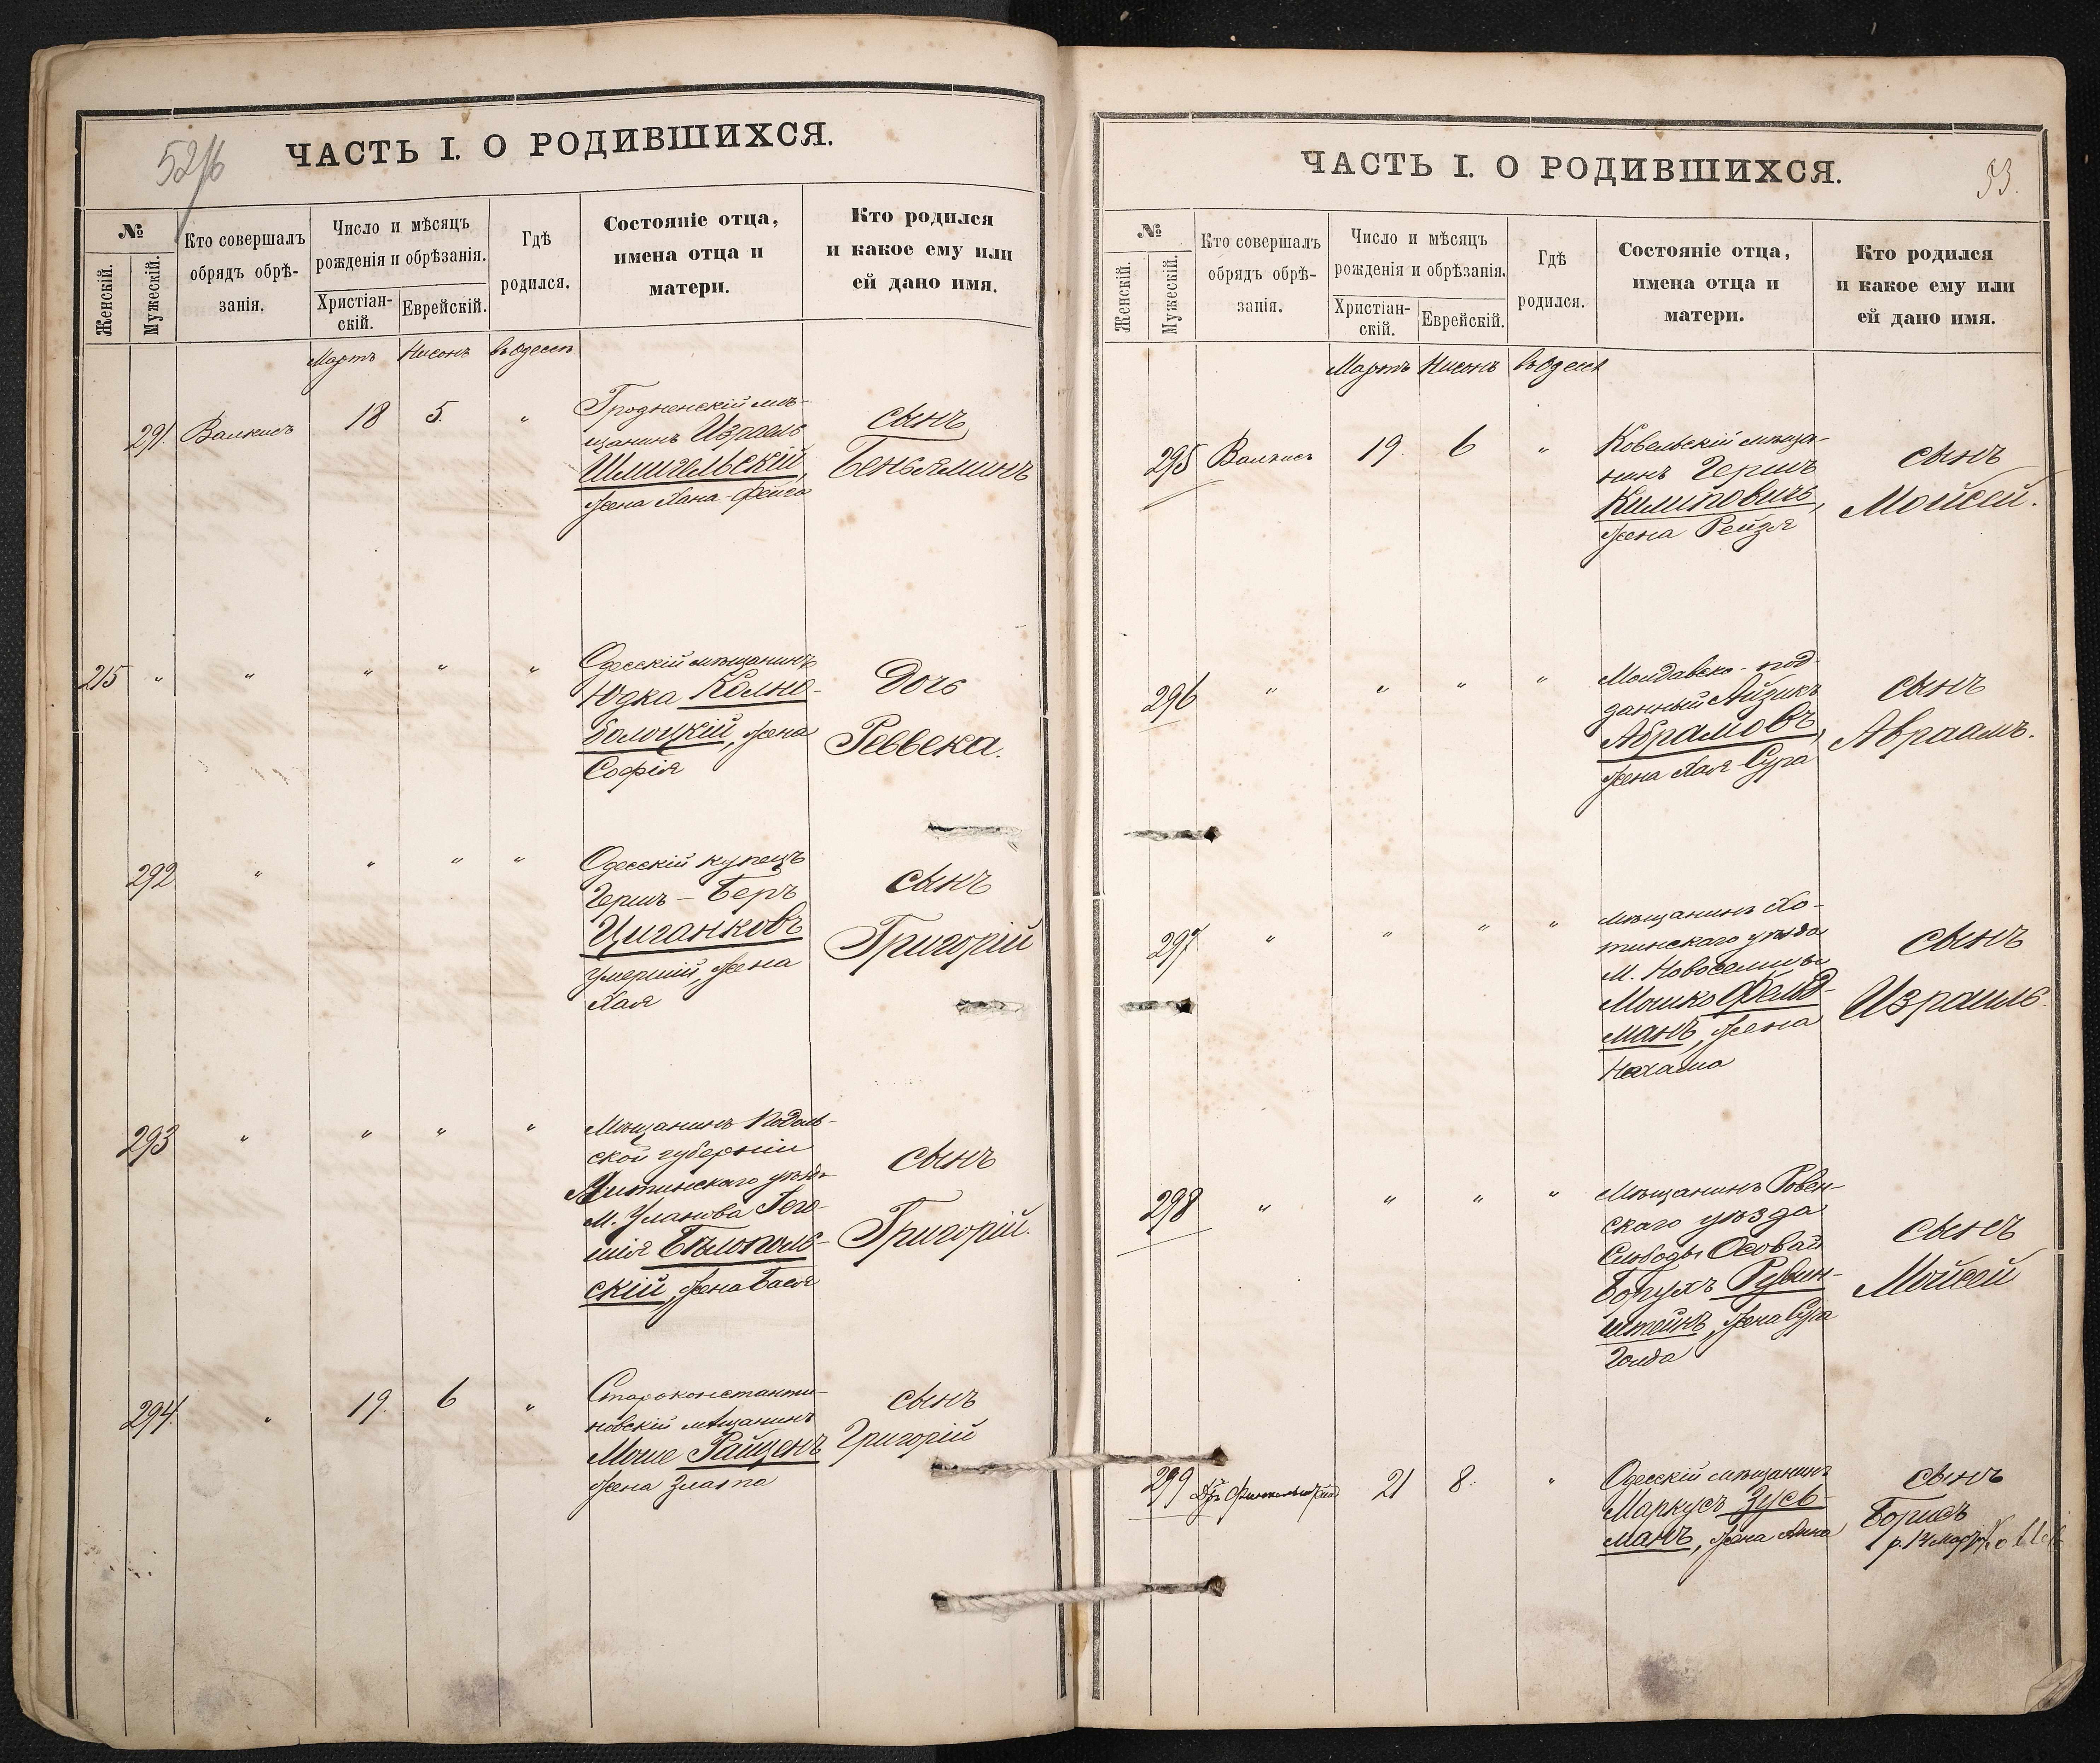 52/б
ЧАСТЬ I. О РОДИВШИХСЯ.
№
Женскій.
Мужескій.
Кто совершалъ
обрядъ обрѣ-
занія.
Число и мѣсяцъ
рожденія и обрѣзанія.
Христіан-
скій.
Еврейскій.
Гдѣ
родился.
Состояніе отца,
имена отца и
матери.
Кто родился
и какое ему или
ей дано имя.
Мартъ Нисонъ въ Одессѣ
291. Валкисъ 18 5. "
Гродненскій мѣ-
щанинъ Израель
Шмигельскій,
жена Хана-Фейга
сынъ
Беньяминъ
215 " " " " "
Одесскій мѣщанинъ
Юдка Колно-
болоцкій, жена
Софія
Дочь
Реввека.
292 " " " "
Одесскій купецъ
Гершъ-Беръ
Циганковъ
умершій, жена
Хая
сынъ
Григорій
293 " " " "
Мѣщанинъ Подоль-
ской губерніи
Литинскаго уѣзда
М. Уланова Гего-
шія Бѣлополь-
скій, жена Бася
сынъ
Григорій.
294. " 19. 6 "
Староконстанти-
новскій мѣщанинъ
Моше Райценъ
жена Злата
сынъ
Григорій
ЧАСТЬ I. О РОДИВШИХСЯ.
53.
№
Женскій.
Мужескій.
Кто совершалъ
обрядъ обрѣ-
занія.
Число и мѣсяцъ
рожденія и обрѣзанія.
Христіан-
скій.
Еврейскій.
Гдѣ
родился.
Состояніе отца,
имена отца и
матери.
Кто родился
и какое ему или
ей дано имя.
Мартъ Нисонъ въ Одессѣ
295 Валкисъ 19. 6 "
Ковельскій мѣща-
нинъ Гершъ
Климовичъ,
жена Рейзя
сынъ
Мойсей.
296 " " " "
Молдавско-под-
данный Айзикъ
Абрамовъ,
жена Хая Сура
сынъ
Авраамъ.
297 " " " "
Мѣщанинъ Хо-
тинскаго уѣзда
М. Новоселицы
Мошко Фельд-
манъ, жена
Нехама
сынъ
Израиль.
298 " " " "
Мѣщанинъ Ровен-
скаго уѣзда
Слободы Осовай
Борухъ Рубин-
штейнъ, жена Сура
Голда
сынъ
Мойсей
299 Дръ 21 8. "
Одесскій мѣщанинъ
Маркусъ Зусь-
манъ, жена Анна
сынъ
Борисъ
р. 14 Марта